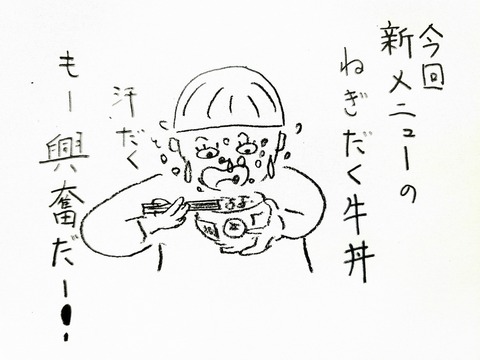 今回
新メニューの
ねぎだく牛丼
汗だく
もー興奮だー!